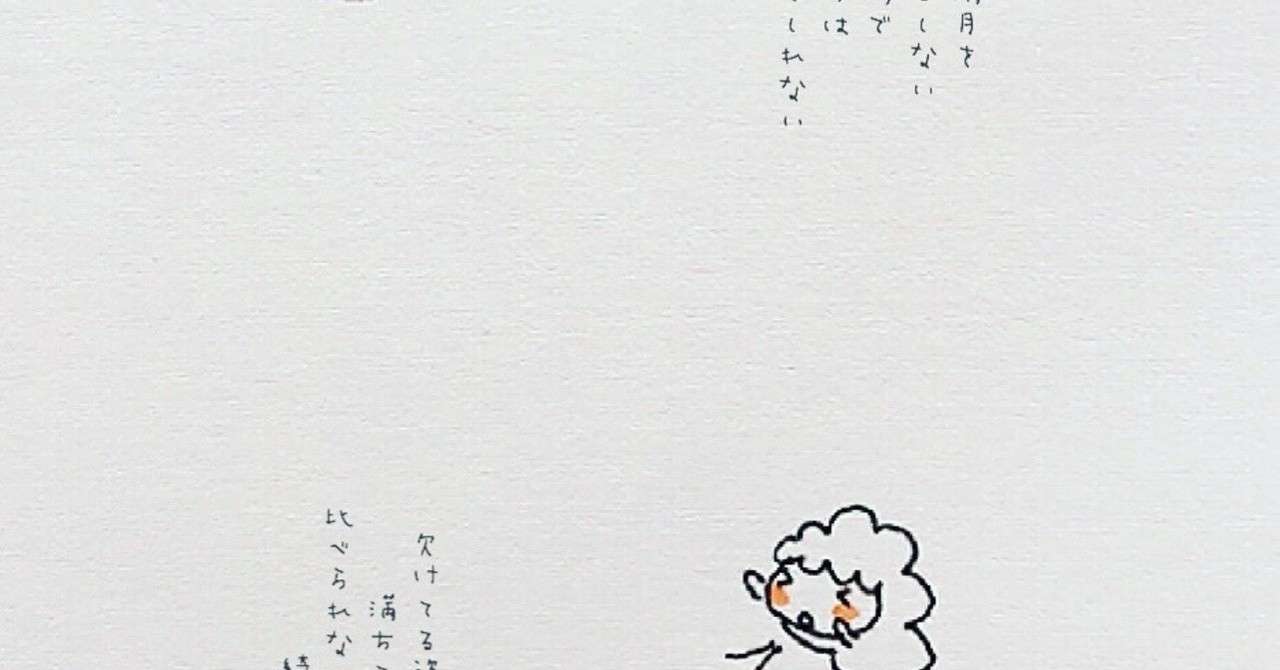 月を
しない
で
は
しれない
欠けてる
満ち
比べられな